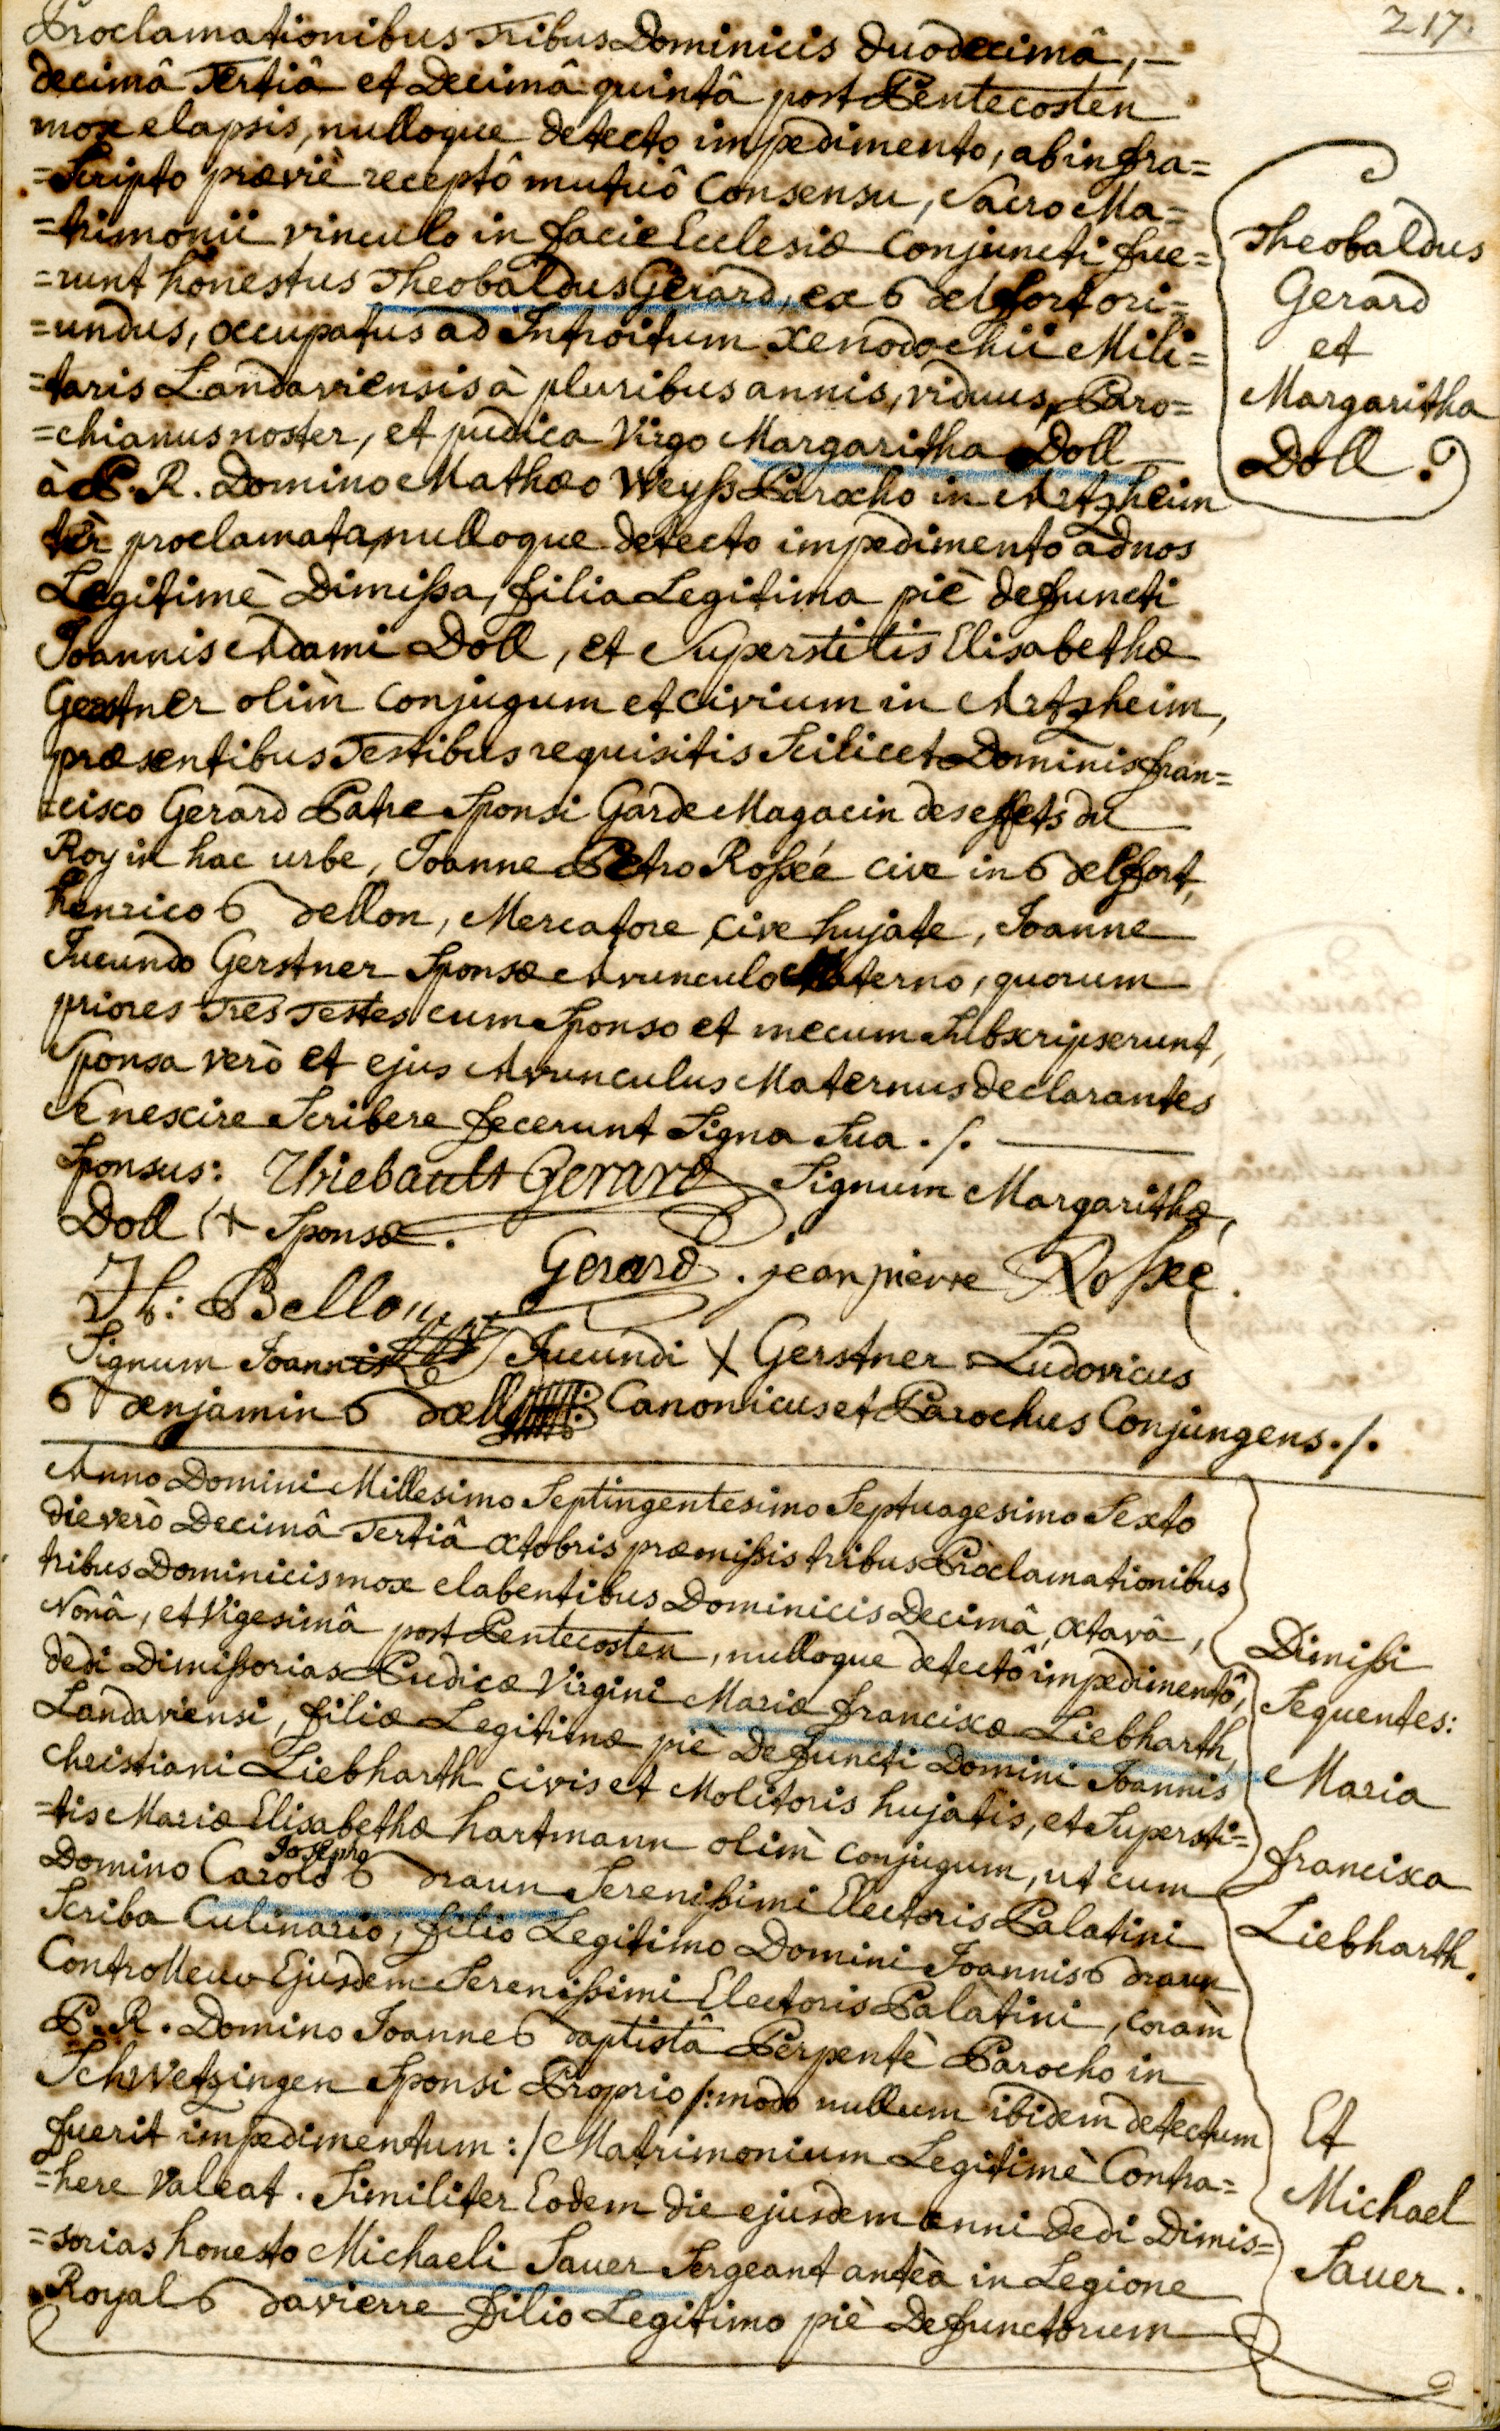 217.
Proclamationibus Tribus Dominicis duodecimâ, –
decimâ Tertiâ et Decimâ quintâ post Pentecosten
mox elapsis, nulloque detecto impedimento, ab infra=
=Scripto præviè receptô mutuô Consensu, Sacro Ma=
=trimonii vinculo in facie Ecclesiæ Conjuncti fue=
=runt honestus Theobaldus Gerard, ex Belfort ori=
=undus, occupatus ad Introitum Xenodochii Mili=
=taris Landaviensis à pluribus annis, viduus, Paro=
=chianus noster, et pudica Virgo Margaritha Doll
à P. R. Domino Mathæo Weyß Parocho in Artzheim
tèr proclamata, nulloque detecto impedimento ad nos
Legitimè Dimißa, filia Legitima piè defuncti
Joannis Adami Doll, et Superstitis Elisabethæ
Gerstner olìm Conjugum et Civium in Artzheim,
præsentibus Testibus requisitis Scilicet Dominis fran=
=cisco Gerard Patre Sponsi Garde Magacin des effets du
Roy in hac urbe, Joanne Petro Roßée cive in Belfort,
henrico Bellon, Mercatore, cive hujate, Joanne
Jucundo Gerstner Sponsæ Avunculo Materno, quorum
priores Tres Testes cum Sponso et mecum Subscripserunt,
Sponsa verò et ejus Avunculus Maternus declarantes
Se nescire Scribere fecerunt Signa Sua ./.
Sponsus: Thiebault Gerard Signum Margarithæ
Doll (+ Sponsæ.
Gerard . jean pierre Roßée.
H: Bellon
Signum Joannis Jucundi X Gerstner Ludovicus
Benjamin Boell Canonicus et Parochus Conjungens ./.
Theobaldus
Gerard
et
Margaritha
Doll.
Anno Domini Millesimo Septingentesimo Septuagesimo Sexto
die verò Decimâ Tertiâ octobris præmißis tribus Proclamationibus
tribus Dominicis mox elabentibus Dominicis Decimâ, octavâ,
Nonâ, et Vigesimâ post Pentecosten, nulloque detectô impedimentô,
dedi Dimißorias Pudicæ Virgini Mariæ franciscæ Liebharth,
Landaviensi, filiæ Legitimæ piè Defuncti Domini Joannis
Christiani Liebharth civis et Molitoris hujatis, et Supersti=
=tis Mariæ Elisabethæ hartmann olìm conjugum, ut cum
Josepho
Domino Carolo Braun Serenißimi Electoris Palatini
Scriba Culinario, filio Legitimo Domini Joannis Braun
Controlleur Ejusdem Serenißimi Electoris Palatini, coràm
P. R. Domino Joanne Baptistâ Perpentè Parocho in
Schwetzingen Sponsi Proprio /: modo nullum ibidem detectum
fuerit impedimentum :/ Matrimonium Legitimè Contra=
=here Valeat. Similiter Eodem die ejusdem anni dedi Dimis=
=sorias honesto Michaeli Sauer Sergeant anteà in Legione
Royal Bavierre filio Legitimo piè Defunctorum
Dimißi
Sequentes:
Maria
francisca
Liebharth.
Et
Michael
Sauer.